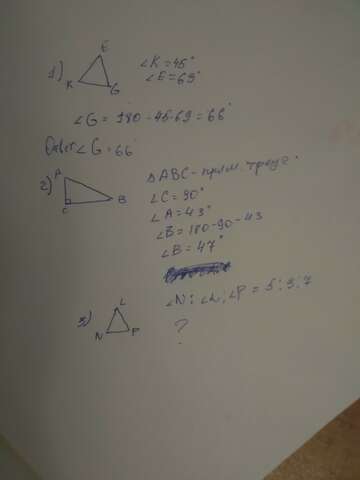 1) E K G ∠K = 45°
∠E = 69°
∠G = 180 - 45-69 = 66°
Ответ ∠G = 66°
2) A C B ΔABC - прям. треуг.
∠C = 90°
∠A = 43°
∠B = 180 - 90 - 43
∠B = 47°
3) L N P ∠N : ∠L : ∠P = 5 : 3 : 7
?